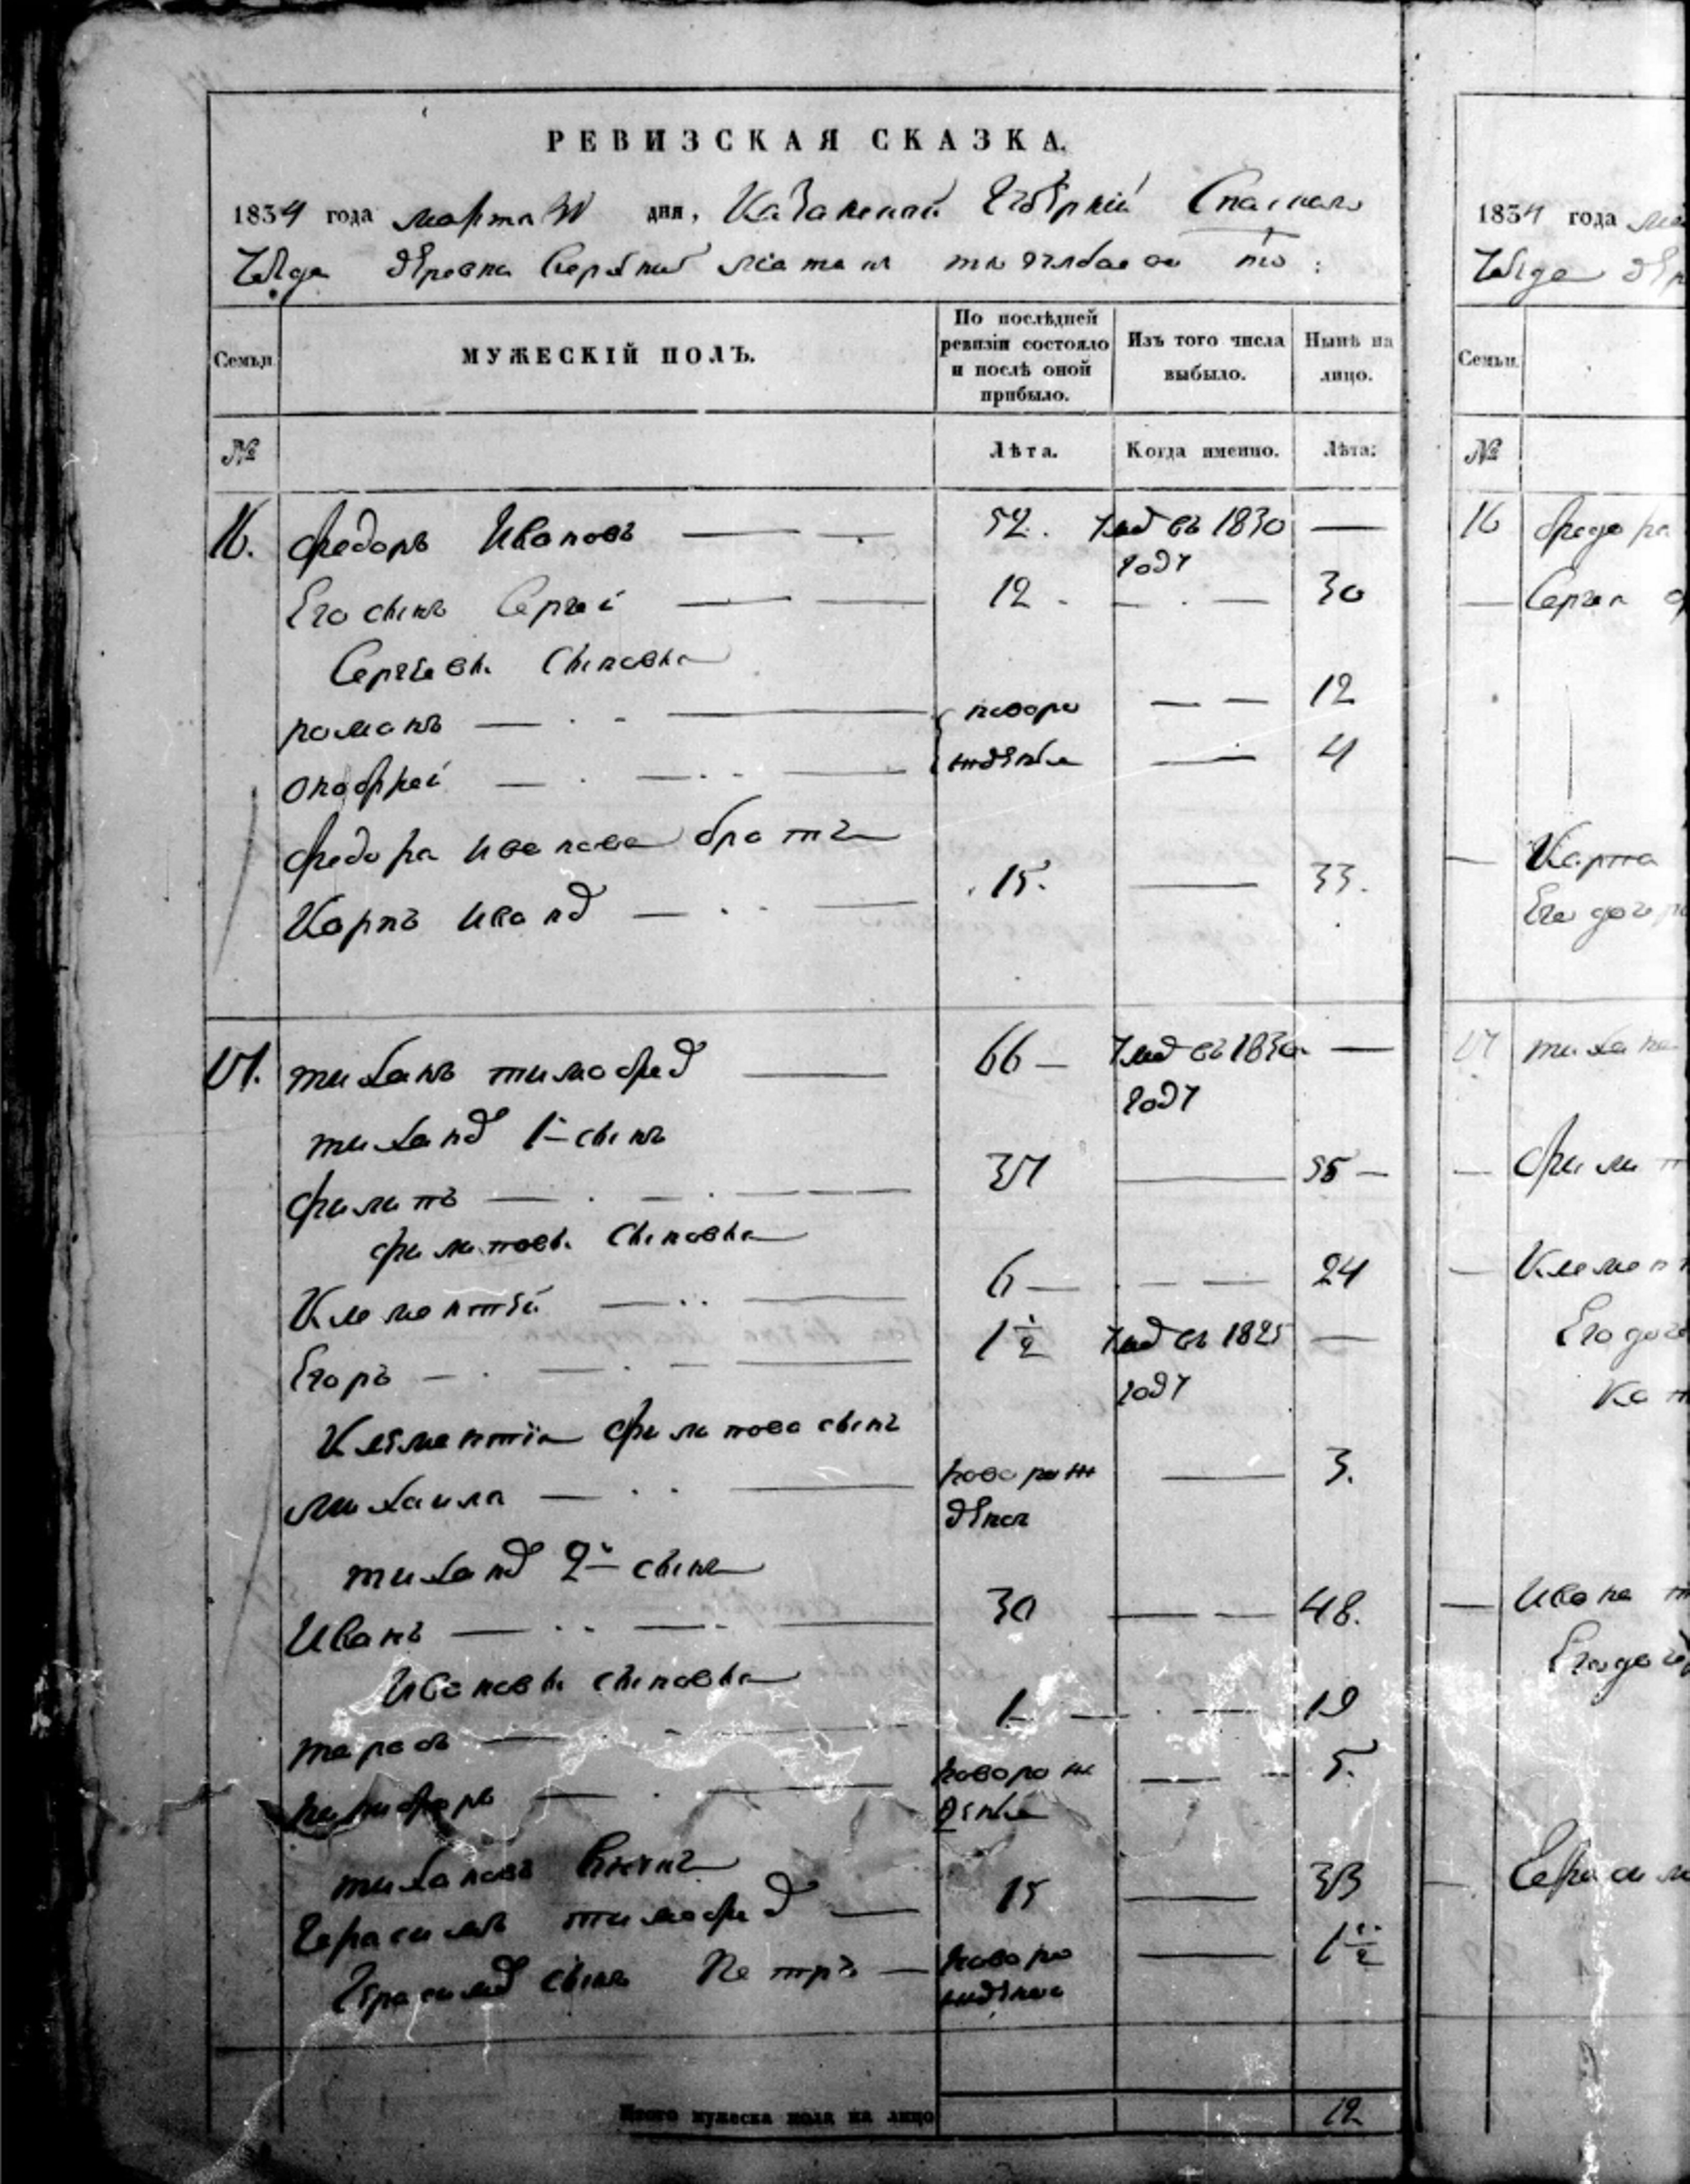 РЕВИЗСКАЯ СКАЗКА.
1834 года марта дня, Казанской Губернiи Спаскаго
Уѣзда деревни
Семьи
МУЖЕСКIЙ ПОЛЪ.
По послѣдней ревизiи состояло и послѣ оной прибыло.
Изъ того числа выбыло.
Нынѣ на лицо.
№ Лѣта. Когда именно. Лѣта:
16. Федоръ Ивановъ 52. Умер въ 1830 году —
Его сынъ Сергеi 12 — 30
Сергѣевы Сыновья
романъ новоро 12
онофреi жденыя 4
Федора иванова братъ
Карпъ Иванов 15. 33.
17. тиханъ тимофеев 66 — Умер въ 1830м году —
тиханов 1й сынъ
филипъ 37 55 —
филиповы Сыновья
Клементiй 6 — 24
Егоръ 1 1/2 Умер въ 1825 году —
Клементiя филипова сынъ
михаила новорож денои 3.
тиханов 2й сынъ
Иванъ 30 48.
Ивановы сыновья
тарасъ 1 — 19
никифоръ новорож деныя 5.
тихановъ
Герасимъ тимофеев 15 33
Герасимов сынъ Петръ новоро жденои 1 1/2
Итого мужеска пола на лицо 12
1834 года
Уѣзда
Семьи.
№
16 Федора
Сергея
Карпа
Его дочери
17 тихана
Филип
Клемент
Его доче
Ивана
Его доче
Герасим